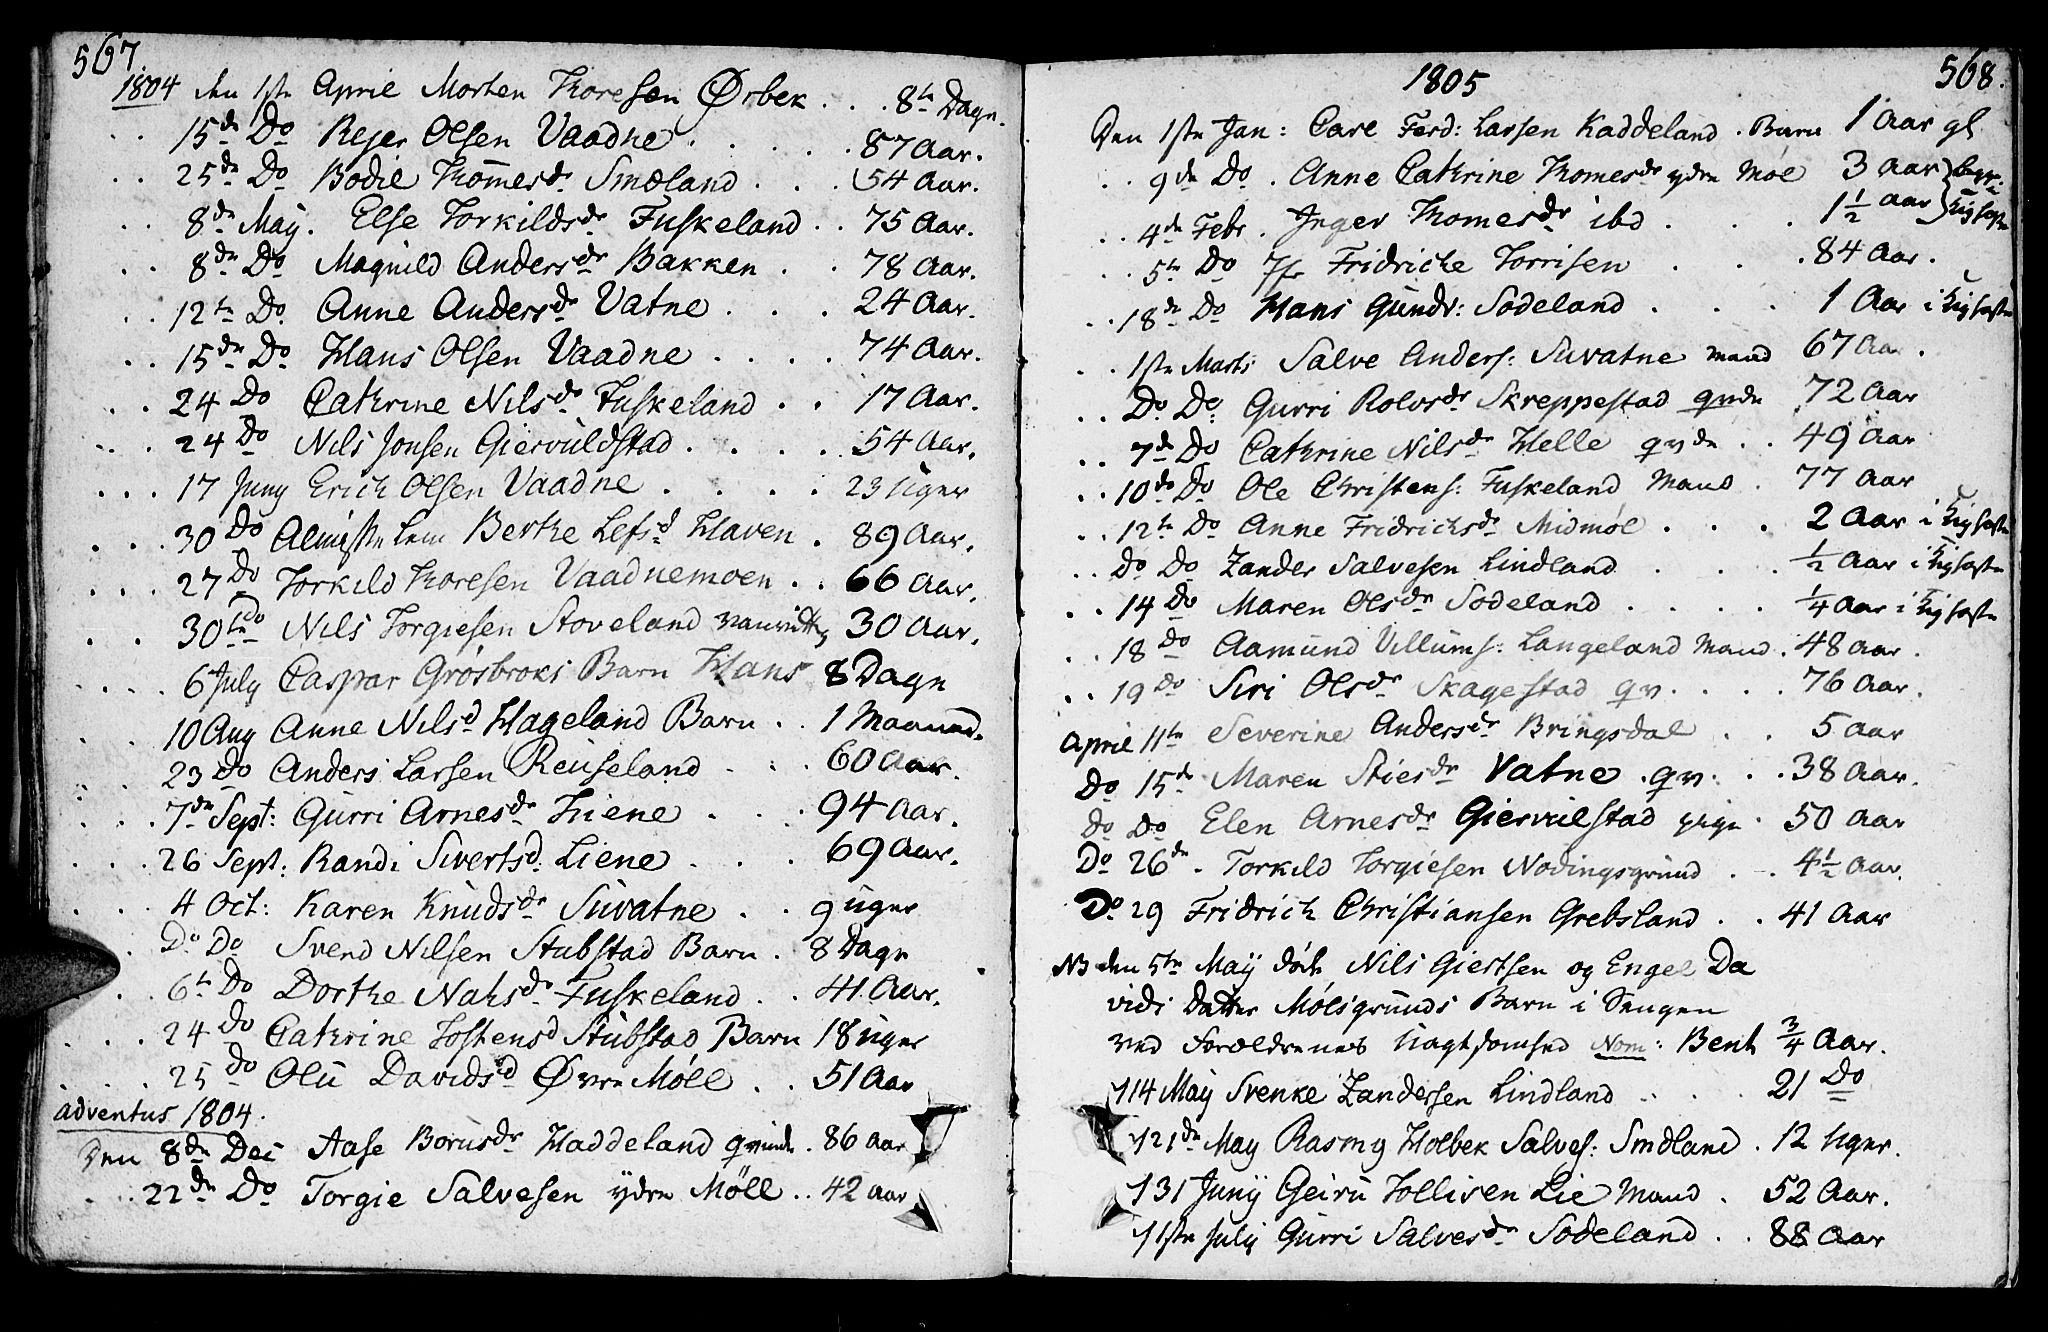 567.
1804 den 1ste April Morten Thoresen Ørbek . . . 8te Dage.
. . 15de Do Rejer Olsen Vaadne . . . . . 87 Aar.
. . 25de Do Bodil Thomesdr Smedland . . . 54 Aar.
. . 8de May. Else Torkildsdr Fuskeland . . 75 Aar.
. . 8de Do Magnild Andersdr Bakken . . 78 Aar.
. . 12te Do. Anne Andersdr Vatne . . . 24 Aar.
. . 15de Do Hans Olsen Vaadne . . . . 74 Aar.
. . 24 Do Cathrine Nilsdr Fuskeland . . 17 Aar.
. . . 24 Do Nils Jonsen Giervuldstad . . . . 54 Aar.
. . . 17 Juny Erich Olsen Vaadne . . . . 23 Uger
. . . 30 Do Almisse Lem Berthe Lefsd Haven . 89 Aar.
. . . 27 Do Torkild Thoresen Vaadnemoen . . 66 Aar.
. . 30te Do Nils Torgiesen Stoveland 30 Aar.
. . . . 6 July Caspar Grøsbroks Barn Hans 8 Dage
. . 10 Aug Anne Nilsd Hageland Barn . . 1 Maaned.
. . 23 Do Anders Larsen Reuseland . . . 60 Aar.
. . . 7de Sept: Gurri Arnesdr Liene . . . 94 Aar.
. . . 26 Sept: Randi Sivertsd. Liene . . . 69 Aar.
. . . 4 Oct: Karen Knudsdr Suvatne . . 9 Uger
. Do Do Svend Nilsen Stubstad Barn . 8 Dage
. . . 6te Do Dorthe Nahsdr Fuskeland . . 41 Aar.
. . . 24 Do Cathrine Tostensd Stubstad Barn 18 Uger
. . . . 25 Do Olu Davidsd Øvre Møll . . 51 Aar
Adventus 1804.
Den 8de Dec Aase Borusdr Haddeland qvinde . 86 Aar
. . . 22de Do Torgie Salvesen ydre Möll . . 42 Aar
1805 568.
Den 1ste Jan: Carl Ferd: Larsen Kaddeland . Barn 1 Aar gl
. . 9de Do . Anne Cathrine Thomesdr ydre Møl 3 Aar
. . 4de Febr . Inger Thomesdr ibd . . . 1 1/2 Aar
. . 5te Do Fridriche Torrisen . . . 84 Aar.
. . 18de Do Hans Gundr: Sodeland . . . 1 Aar i Kighoste
. . 1ste Marts Salve Anders: Suvatne Mand 67 Aar.
. . Do Do Gurri Rolvsdr Skreppestad qvde 72 Aar
. . 7de Do Cathrine Nilsdr Helle qvde . . 49 Aar
. . 10de Do Ole Christens: Fuskeland Mand . 77 Aar
. . 12te Do Anne Fridrichsdr Midmøl . . . 2 Aar i Kighoste
. . Do Do Zander Salvesen Lindland . . . 1/2 Aar i Kighoste
. . 14 Do Maren Olsdr Sodeland . . . . 1/4 Aar i Kighoste
. . 18 Do Aamund Villums: Langeland Mand . 48 Aar.
. . 19 Do Siri Olsdr Skagestad qv. . . . 76 Aar.
April 11te Severine Andersdr Bringsdal . . 5 Aar
Do 15de Maren Stiesdr Vatne . qv. . . 38 Aar.
Do Do Elen Arnesdr Giervulstad pige . 50 Aar
Do 26de . Torkild Torgiesen Nodingsgrund . . 4 1/2 Aar.
Do 29 Fridrich Christiansen Grebsland . . 41 Aar
NB den 5te May døde Nils Giertsen og Engel Da
vids Datter Mølsgrunds Barn i Sengen
ved Forældrenes Uagtsomhed Nom: Bent 3/4 Aar.
14 May Svenke Zandersen Lindland . . . . 21 Do
21de May Rasmy Holbek Salves: Smdland . 12 Uger.
31 Juny Geiru Tollisen Lie Mand . 52 Aar.
1ste July Gurri Salvesdr Sodeland . . 88 Aar